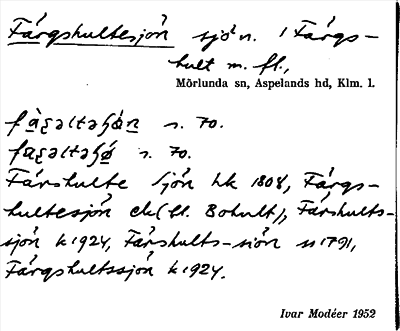 Färgshultesjön sjö n. i Färgs-
hult m. fl.,
Mörlunda sn, Aspelands hd, Klm. l.
s. 70.
s. 70.
Färshulte Sjön hk 1808, Färgs-
hultesjön ek (bl. Bohult), Färshults-
sjön k 1924, Färshults-siön s 1791,
Färgshultssjön k 1924.
Ivar Modéer 1952